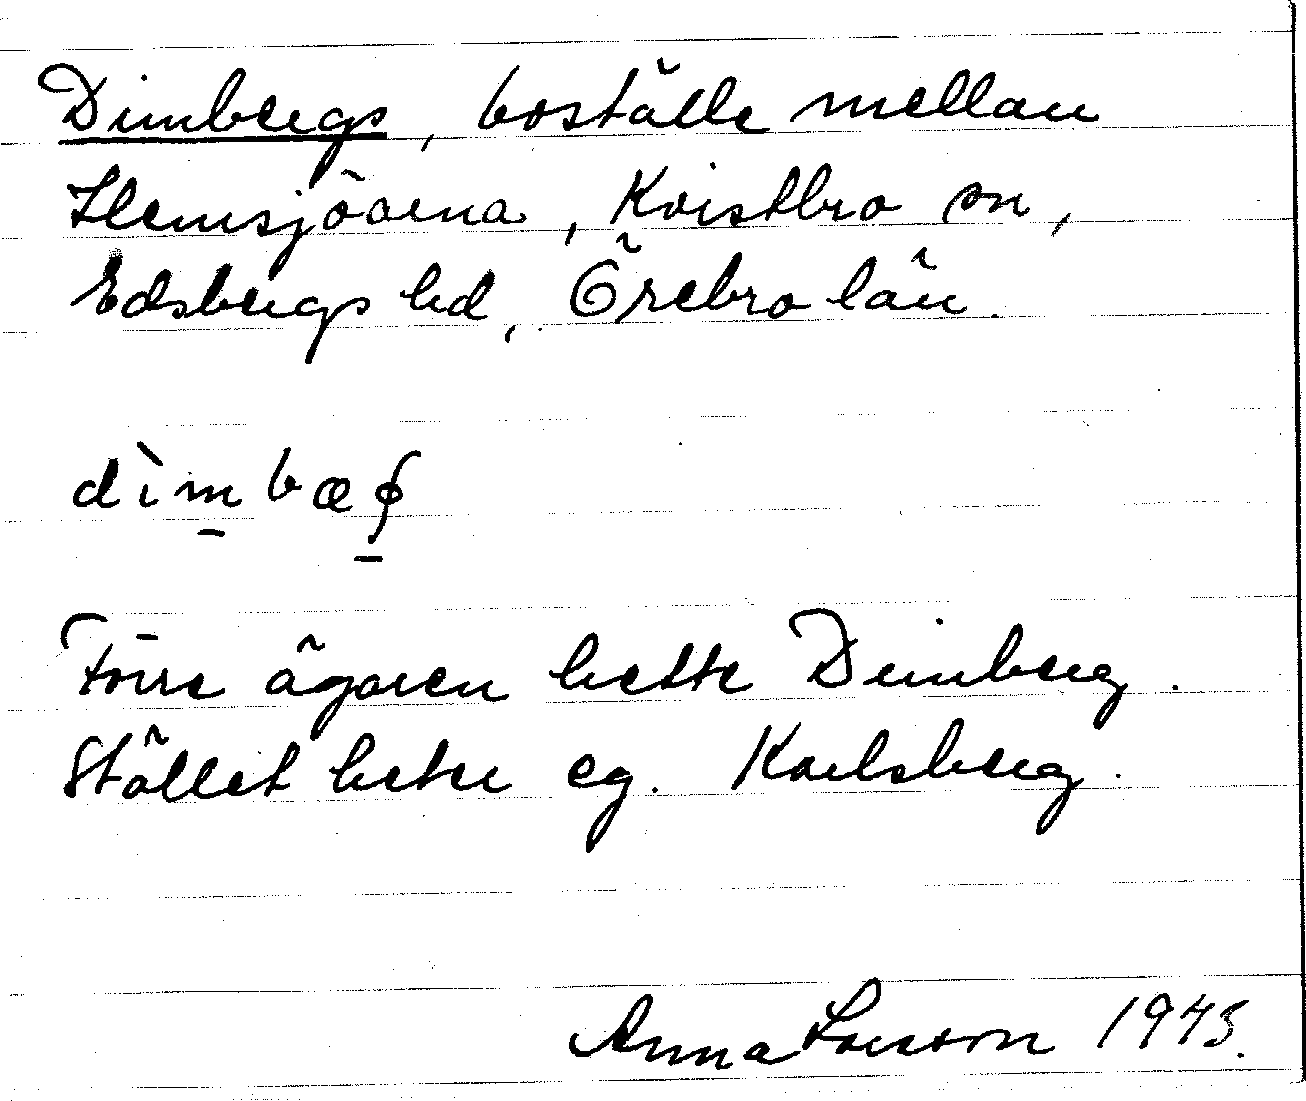 Dimbergs, boställe mellan
Ilemsjöarna, Kvistbro sn,
Edsbergs hd, Örebro län.
dìmbæ
Förre ägaren hette Dimberg.
Stället heter eg. Karlsberg.
Anna Larsson 1945.